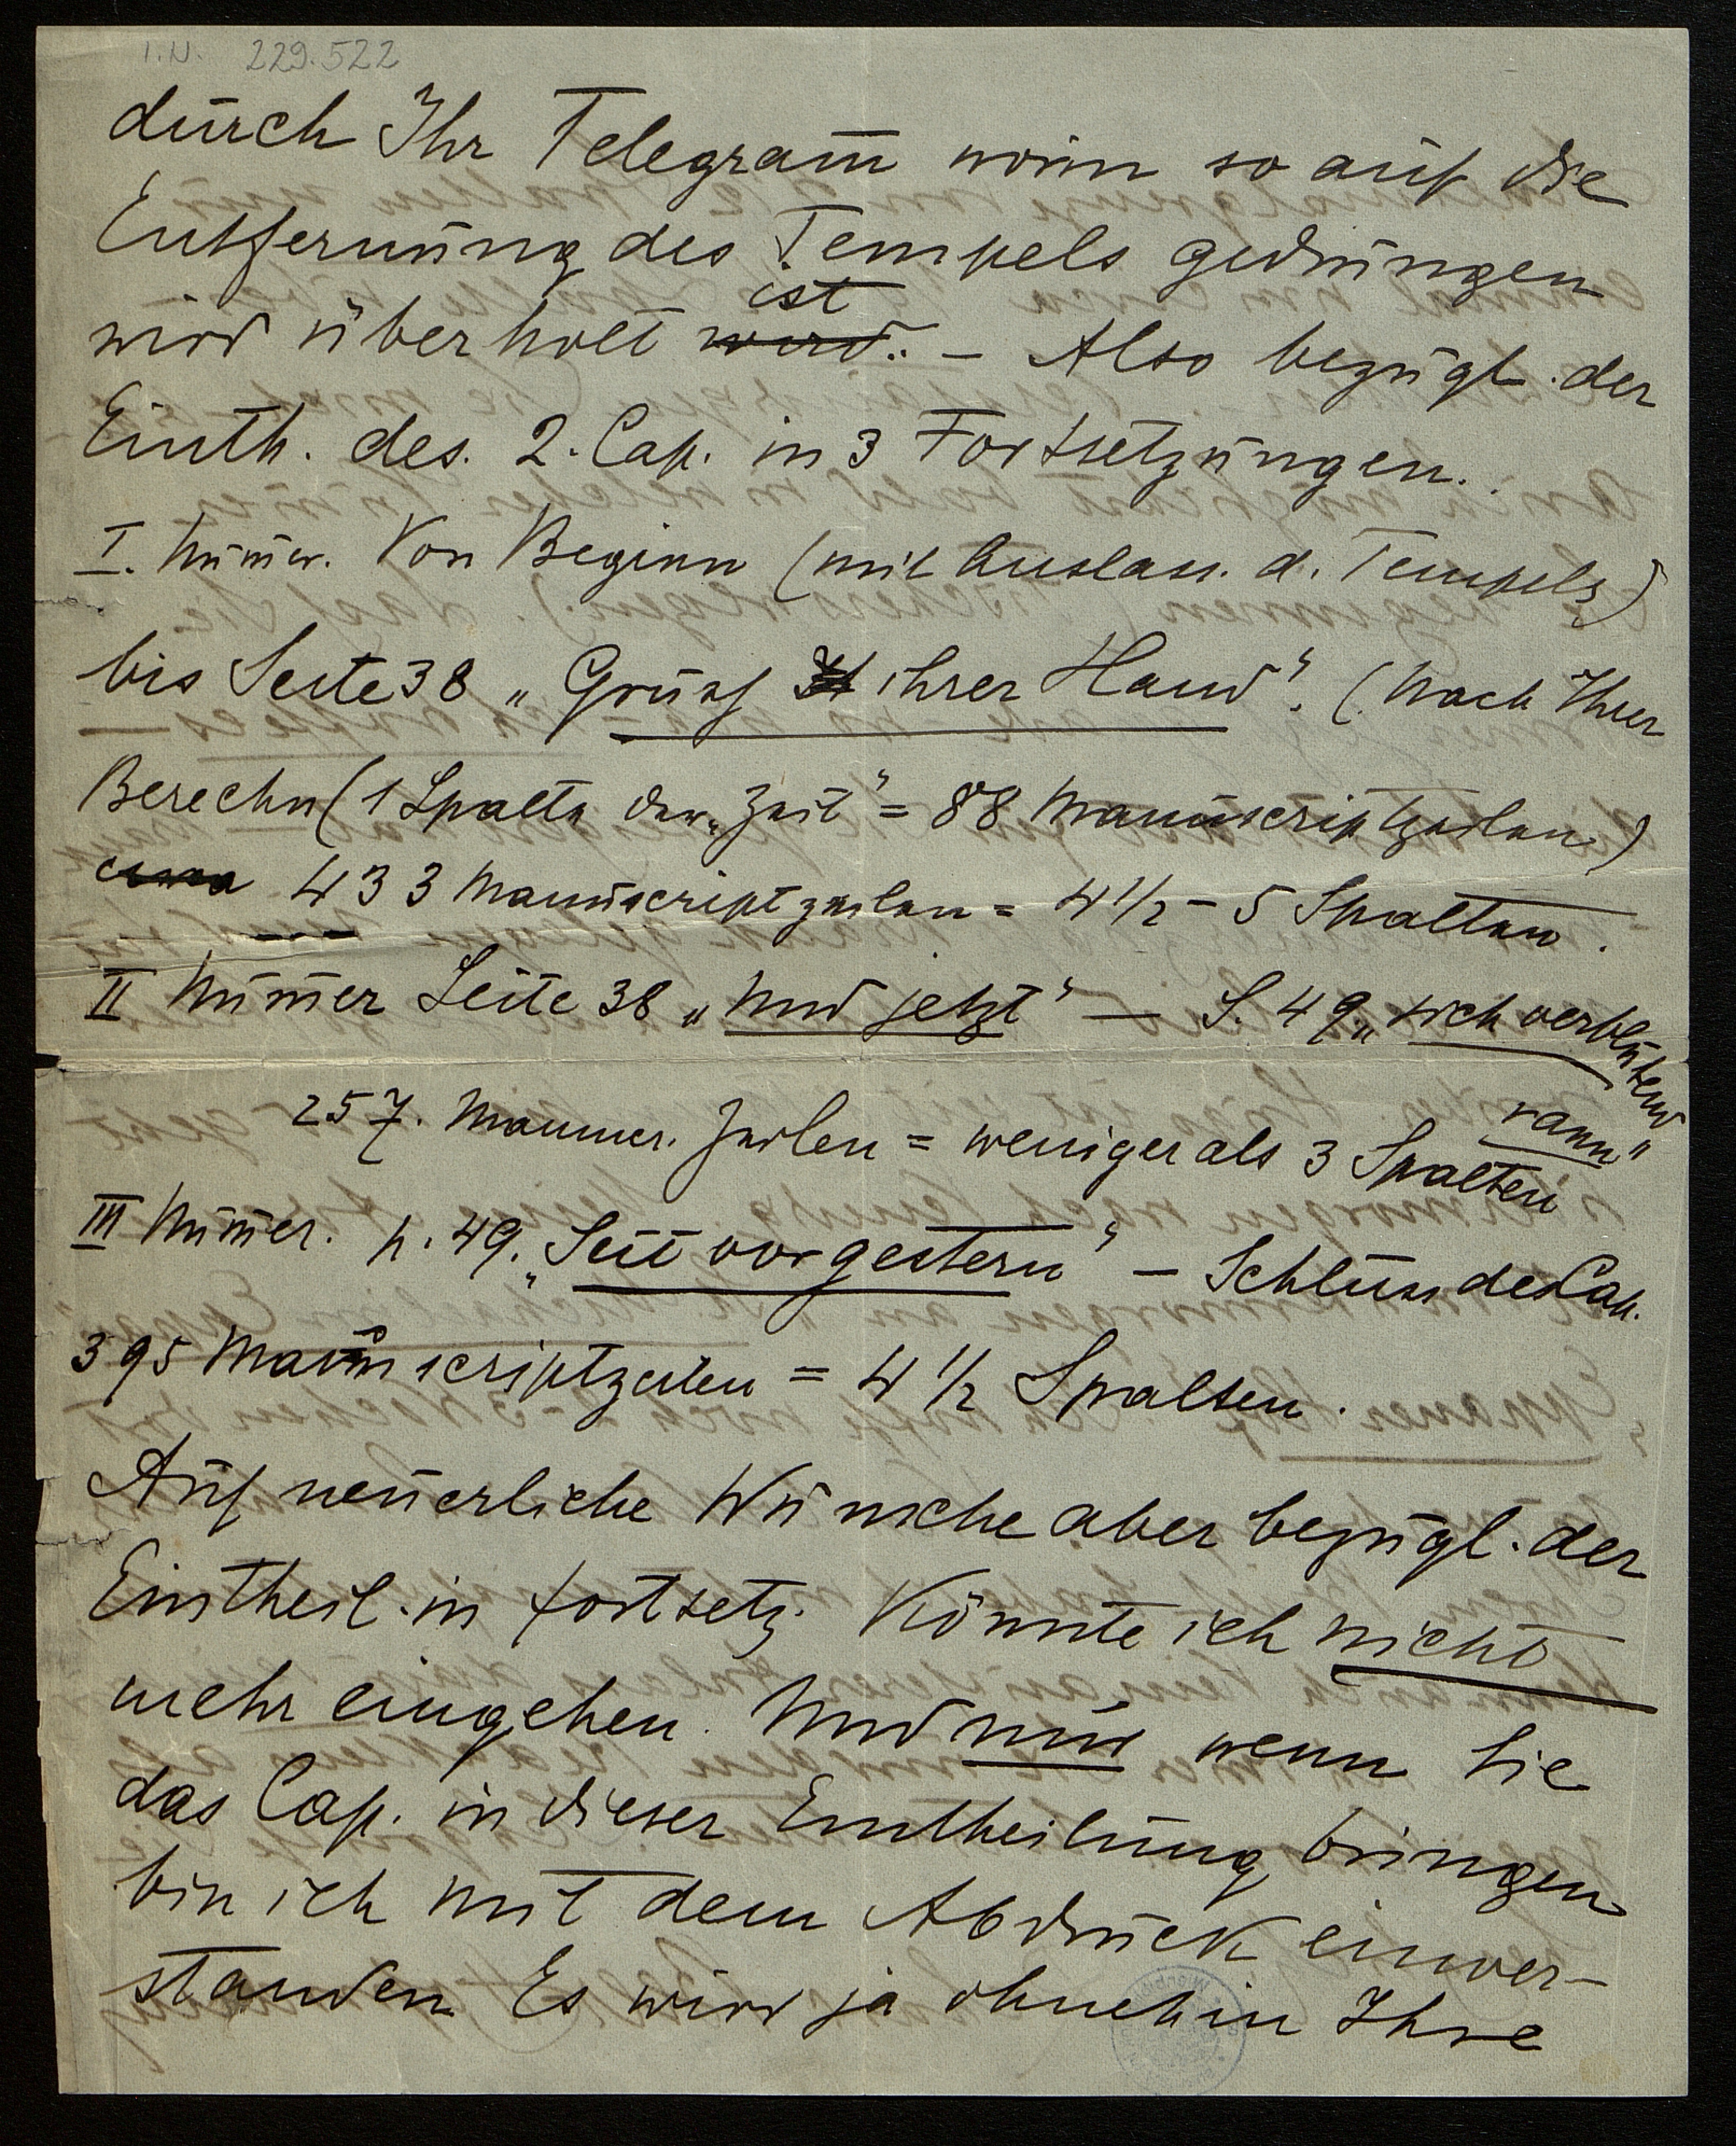 I.N. 229.522
durch Ihr Telegram̄ worin so auf die
Entfernung des Tempels gedrungen
wird überholt wird.. – Also bezügl. der
ist
Einth. des. 2. Cap. in 3 Fortsetzungen..
I. Num̄er. Von Beginn (mit Auslass. d. Tempels)
bis Seite 38 „Gruss ihrer Hand". (Nach Ihrer
Berechn (1 Spalte der „Zeit" = 88 Manuscriptzeilen)
circa 433 Manuscriptzeilen = 4 1/2 – 5 Spalten.
II Num̄er Seite 38 „Und jetzt" — S. 49 „sich verblutend
rann"
257. Manuscr. Zeilen = weniger als 3 Spalten
III Num̄er. p. 49. „Seit vorgestern" – Schluss des Cap.
395 Manuscriptzeilen = 4 1/2 Spalten.
Auf neuerliche Wünsche aber bezügl. der
Eintheil. in Fortsetz. Könnte ich nicht
mehr eingehen. Und nur wenn Sie
das Cap. in dieser Eintheilung bringen
bin ich mit dem Abdruck einver-
standen Es wird ja ohnehin Ihre